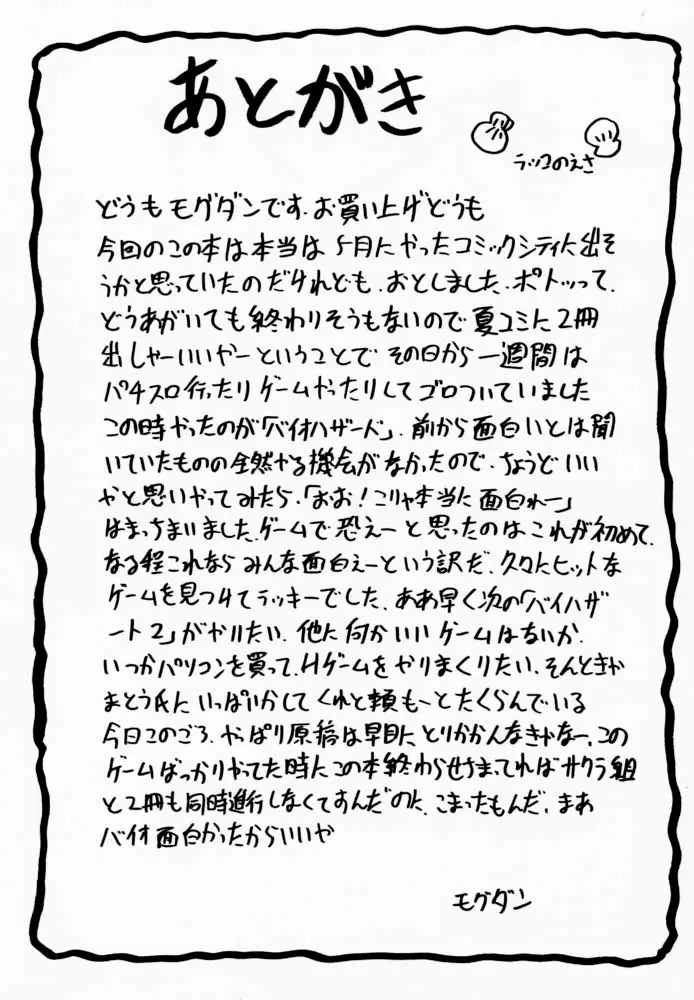 あとがき
ラッコのえさ
どうもモグダンです、お買い上げどうも
今回のこの本は本当は5月にやったコミックシティに出そ
うかと思っていたのだけれども、おとしました、ポトッって、
どうあがいても終わりそうもないので夏コミに2冊
出しゃーいいやーということでその日から一週間は
パチスロ行ったりゲームやったりしてゴロついていました
この時やったのが「バイオハザード」、前から面白いとは聞
いていたものの全然やる機会がなかったので、ちょうどいい
やと思いやってみたら、「おお！こりゃ本当に面白れー」
はまっちまいました、ゲームで恐えーと思ったのはこれが初めて、
なる程これならみんな面白えーという訳だ、久々にヒットな
ゲームを見つけてラッキーでした、ああ早く次の「バイハザ
ート2」がやりたい、他に何かいいゲームはないか、
いつかパソコンを買って、Hゲームをやりまくりたい、そんときゃ
まとう氏にいっぱいかしてくれと頼もーとたくらんでいる
今日このごろ、やっぱり原稿は早目にとりかかんなきゃなー、この
ゲームばっかりやってた時にこの本終わらせちまってればサクラ組
と2冊も同時進行しなくてすんだのに、こまったもんだ、まあ
バイオ面白かったからいいや
モグダン